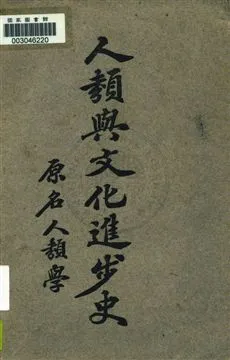 國家圖書館
003046220
人類與文化進步史
原名人類學